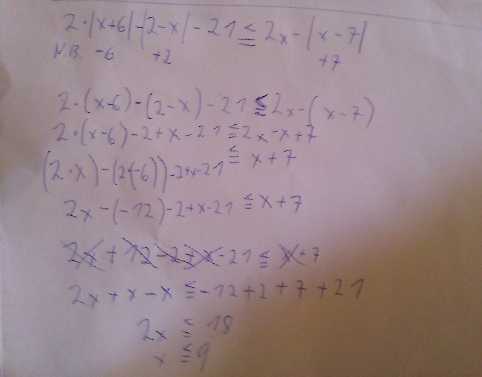 2·|x+6|-|2-x|-21≤2x-|x-7|
N.B. -6 +2 +7
2·(x-6)-(2-x)-21≤2x-(x-7)
2·(x-6)-2+x-21≤2x-x+7
(2·x)-(2·(-6))-2+x-21≤x+7
2x-(-12)-2+x-21≤x+7
2x+12-2+x-21≤x+7
2x+x-x≤-12+2+7+21
2x≤18
x≤9